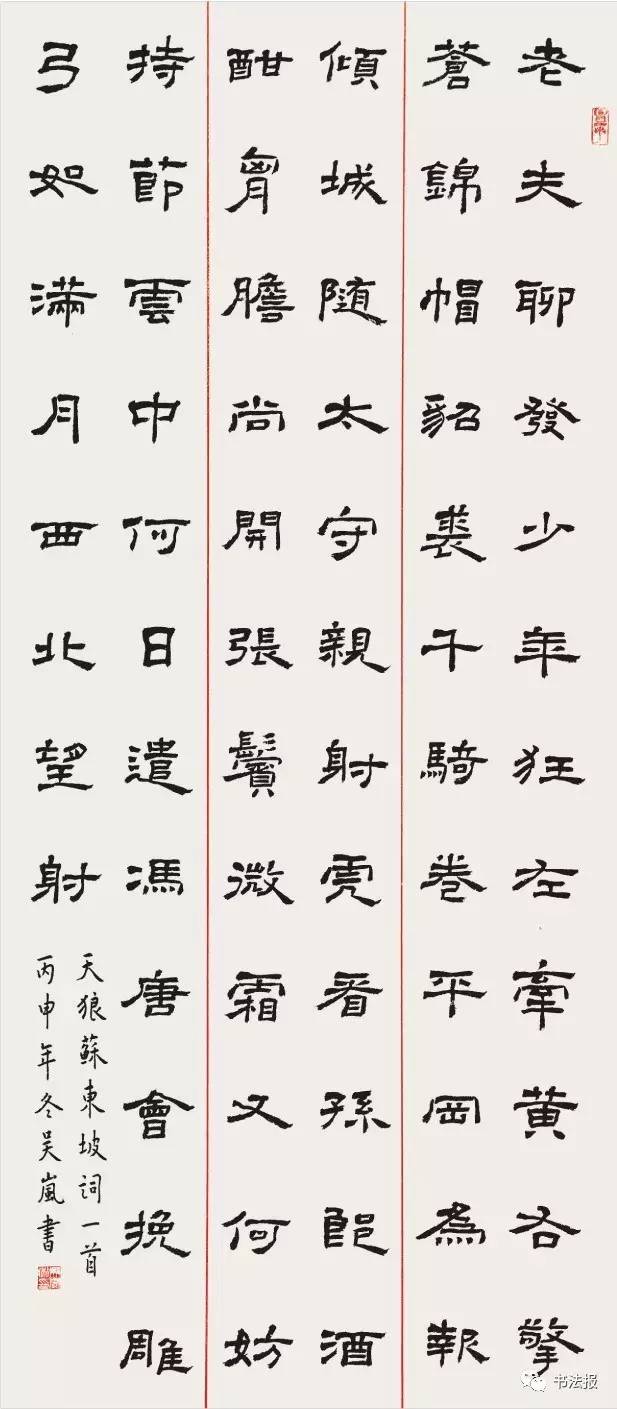 老夫聊發少年狂左牽黄右擎
蒼錦帽貂裘千騎卷平岡為報
傾城随太守親射虎看孫郎酒
酣胷膽尚開張鬢微霜又何妨
持節雲中何日遣馮唐會挽雕
弓如滿月西北望射
天狼蘇東坡詞一首
丙申年冬吴嵐書
书法报